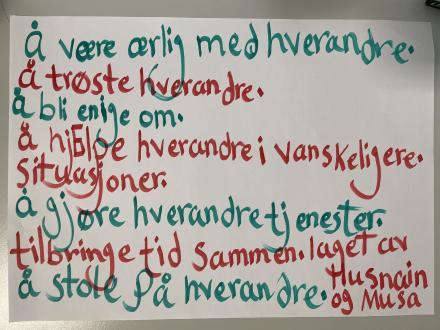 å være ærlig med hverandre.
å trøste hverandre.
å bli enige om.
å hjElpe hverandre i vanskeligere.
situasjoner.
å gjøre hverandre tjenester.
tilbringe tid sammen. laget av
å stole på hverandre. Husnain
og Musa